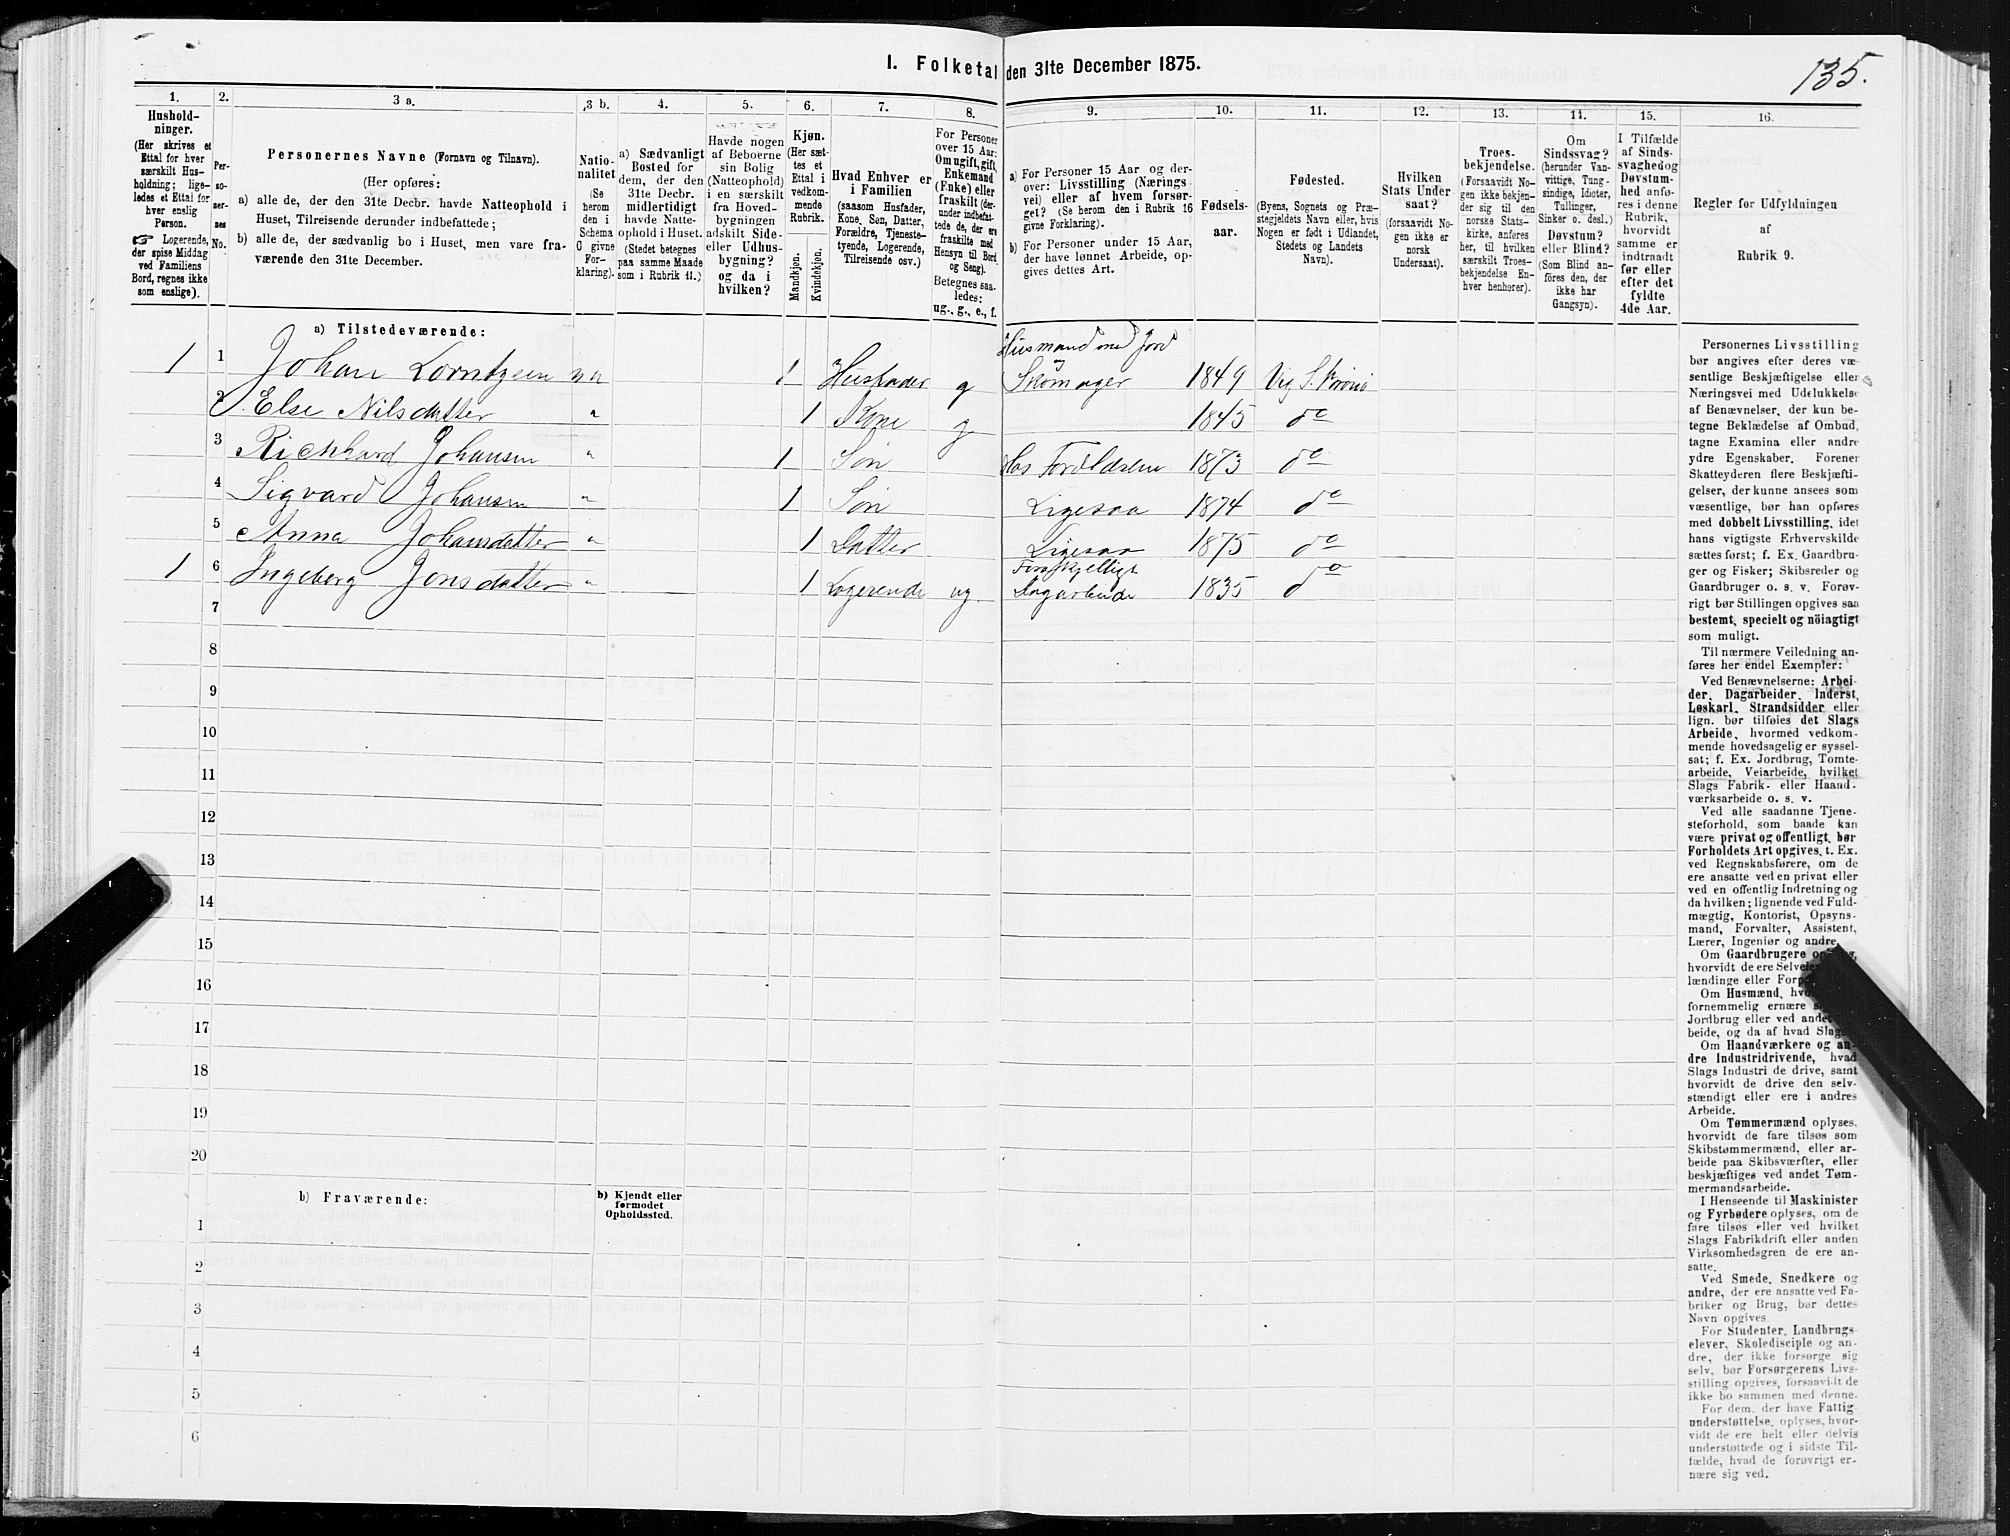 I. Folketal den 31te December 1875.
135.
1.
Hushold-
ninger.
(Her skrives et
Ettal for hver
særskilt Hus-
holdning; lige-
ledes et Ettal for
hver enslig
Person.
☞ Logerende,
der spise Middag
ved Familiens
Bord, regnes ikke
som enslige).
2.
Per-
so-
ner-
nes
No.
3 a.
Personernes Navne (Fornavn og Tilnavn).
(Her opføres:
a) alle de, der den 31te Decbr. havde Natteophold i
Huset, Tilreisende derunder indbefattede;
b) alle de, der sædvanlig bo i Huset, men vare fra-
værende den 31te December.
3 b.
Natio-
nalitet
(Se
herom
den i
Schema
O givne
For-
klaring).
4.
a) Sædvanligt
Bosted for
dem, der den
31te Decbr.
midlertidigt
havde Natte-
ophold i Huset.
(Stedet betegnes
paa samme Maade
som i Rubrik 11.)
5.
Havde nogen
af Beboerne
sin Bolig
(Natteophold)
i en særskilt
fra Hoved-
bygningen
adskilt Side-
eller Udhus-
bygning?
og da i
hvilken?
6.
Kjøn.
(Her sæt-
tes et
Ettal i
vedkom-
mende
Rubrik.
Mandkjøn.
Kvindekjøn.
7.
Hvad Enhver er
i Familien
(saasom Husfader,
Kone, Søn, Datter,
Forældre, Tjeneste-
tyende, Logerende,
Tilreisende osv.)
8.
For Personer
over 15 Aar:
Om ugift, gift,
Enkemand
(Enke) eller
fraskilt (der-
under indbefat-
tede de, der ere
fraskilte med
Hensyn til Bord
og Seng).
Betegnes saa-
ledes:
ug., g., e., f.
9.
a) For Personer 15 Aar og der-
over: Livsstilling (Nærings-
vei) eller af hvem forsør-
get? (Se herom den i Rubrik 16
givne Forklaring).
b) For Personer under 15 Aar,
der have lønnet Arbeide, op-
gives dettes Art.
10.
Fødsels-
aar.
11.
Fødested.
(Byens, Sognets og Præ-
stegjeldets Navn eller, hvis
Nogen er født i Udlandet,
Stedets og Landets
Navn).
12.
Hvilken
Stats Under-
saat?
(forsaavidt No-
gen ikke er
norsk
Undersaat).
13.
Troes-
bekjendelse.
(Forsaavidt No-
gen ikke bekjen-
der sig til den
norske Stats-
kirke, anføres
her, til hvilken
særskilt Troes-
bekjendelse En-
hver henhører).
14.
Om
Sindssvag?
(herunder Van-
vittige, Tung-
sindige, Idioter,
Tullinger,
Sinker o. desl.)
Døvstum?
eller Blind?
(Som Blind an-
føres den, der
ikke har
Gangsyn).
15.
I Tilfælde
af Sinds-
svaghed og
Døvstum-
hed anfø-
res i denne
Rubrik,
hvorvidt
samme er
indtraadt
før eller
efter det
fyldte
4de Aar.
16.
Regler for Udfyldningen
af
Rubrik 9.
a) Tilstedeværende:
1 1 Johan Lorntzsen nn 1 Husfader g Husmand med Jord Skomager 1849
2 Else Nilsdatter " 1 Kone g 1845 do
3 Richhard Johansen " 1 Søn Hos Forældrene 1873 do
4 Sigvard Johansen " 1 Søn Ligesaa 1874 do
5 Anna Johansdatter " 1 Datter Ligesaa 1875 do
1 6 Ingeberg Jonsdatter " 1 Logerende ug Forskjelligt Dagarbeide 1835 do
7
8
9
10
11
12
13
14
15
16
17
18
19
20
b) Fraværende:
b) Kjendt eller
formodet
Opholdssted.
1
2
3
4
5
6
Personernes Livsstilling
bør angives efter deres væ-
sentlige Beskjæftigelse eller
Næringsvei med Udelukkelse
af Benævnelser, der kun be-
tegne Beklædelse af Ombud,
tagne Examina eller andre
ydre Egenskaber. Forener
Skatteyderen flere Beskjæfti-
gelser, der kunne ansees som
væsentlige, bør han opføres
med dobbelt Livsstilling, idet
hans vigtigste Erhvervskilde
sættes først; f. Ex. Gaardbru-
ger og Fisker; Skibsreder og
Gaardbruger o. s. v. Forøv-
rigt bør Stillingen opgives saa
bestemt, specielt og nöiagtigt
som muligt.
Til nærmere Veiledning an-
føres her endel Exempler:
Ved Benævnelserne: Arbei-
der, Dagarbeider, Inderst,
Løskarl, Strandsidder eller
lign. bør tilføies det Slags
Arbeide, hvormed vedkom-
mende hovedsagelig er syssel-
sat; f. Ex. Jordbrug, Tomte-
arbeide, Veiarbeide, hvilket
Slags Fabrik- eller Haand-
værksarbeide o. s. v.
Ved alle saadanne Tjene-
steforhold, som baade kan
være privat og offentligt, bør
Forholdets Art opgives, t. Ex.
ved Regnskabsførere, om de
ere ansatte ved en privat eller
ved en offentlig Indretning og
da hvilken; lignende ved Fuld-
mægtig, Kontorist, Opsyns-
mand, Forvalter, Assistent,
Lærer, Ingeniør og andre.
Om Gaardbrugere
hvorvidt de ere
lændinge eller
Om Husmænd,
fornemmelig ernære
Jordbrug eller ved
beide, og da af hvad
Om Haandværkere og an-
dre Industridrivende, hvad
Slags Industri de drive, samt
hvorvidt de drive den selv-
stændigt eller ere i andres
Arbeide.
Om Tømmermænd oplyses,
hvorvidt de fare tilsøs som
Skibstømmermænd, eller ar-
beide paa Skibsværfter, eller
beskjæftiges ved andet Tøm-
mermandsarbeide.
I Henseende til Maskinister
og Fyrbødere oplyses, om de
fare tilsøs eller ved hvilket
Slags Fabrikdrift eller anden
Virksomhedsgren de ere an-
satte.
Ved Smede, Snedkere og
andre, der ere ansatte ved Fa-
briker og Brug, bør dettes
Navn opgives.
For Studenter, Landbrugs-
elever, Skoledisciple og an-
dre, der ikke forsørge sig
selv, bør Forsørgerens Livs-
stilling opgives, forsaavidt de
ikke bo sammen med denne.
For dem, der have Fattig-
understøttelse, oplyses, hvor-
vidt de ere helt eller delvis
understøttede og i sidste Til-
fælde, hvad de forøvrigt er-
nære sig ved.